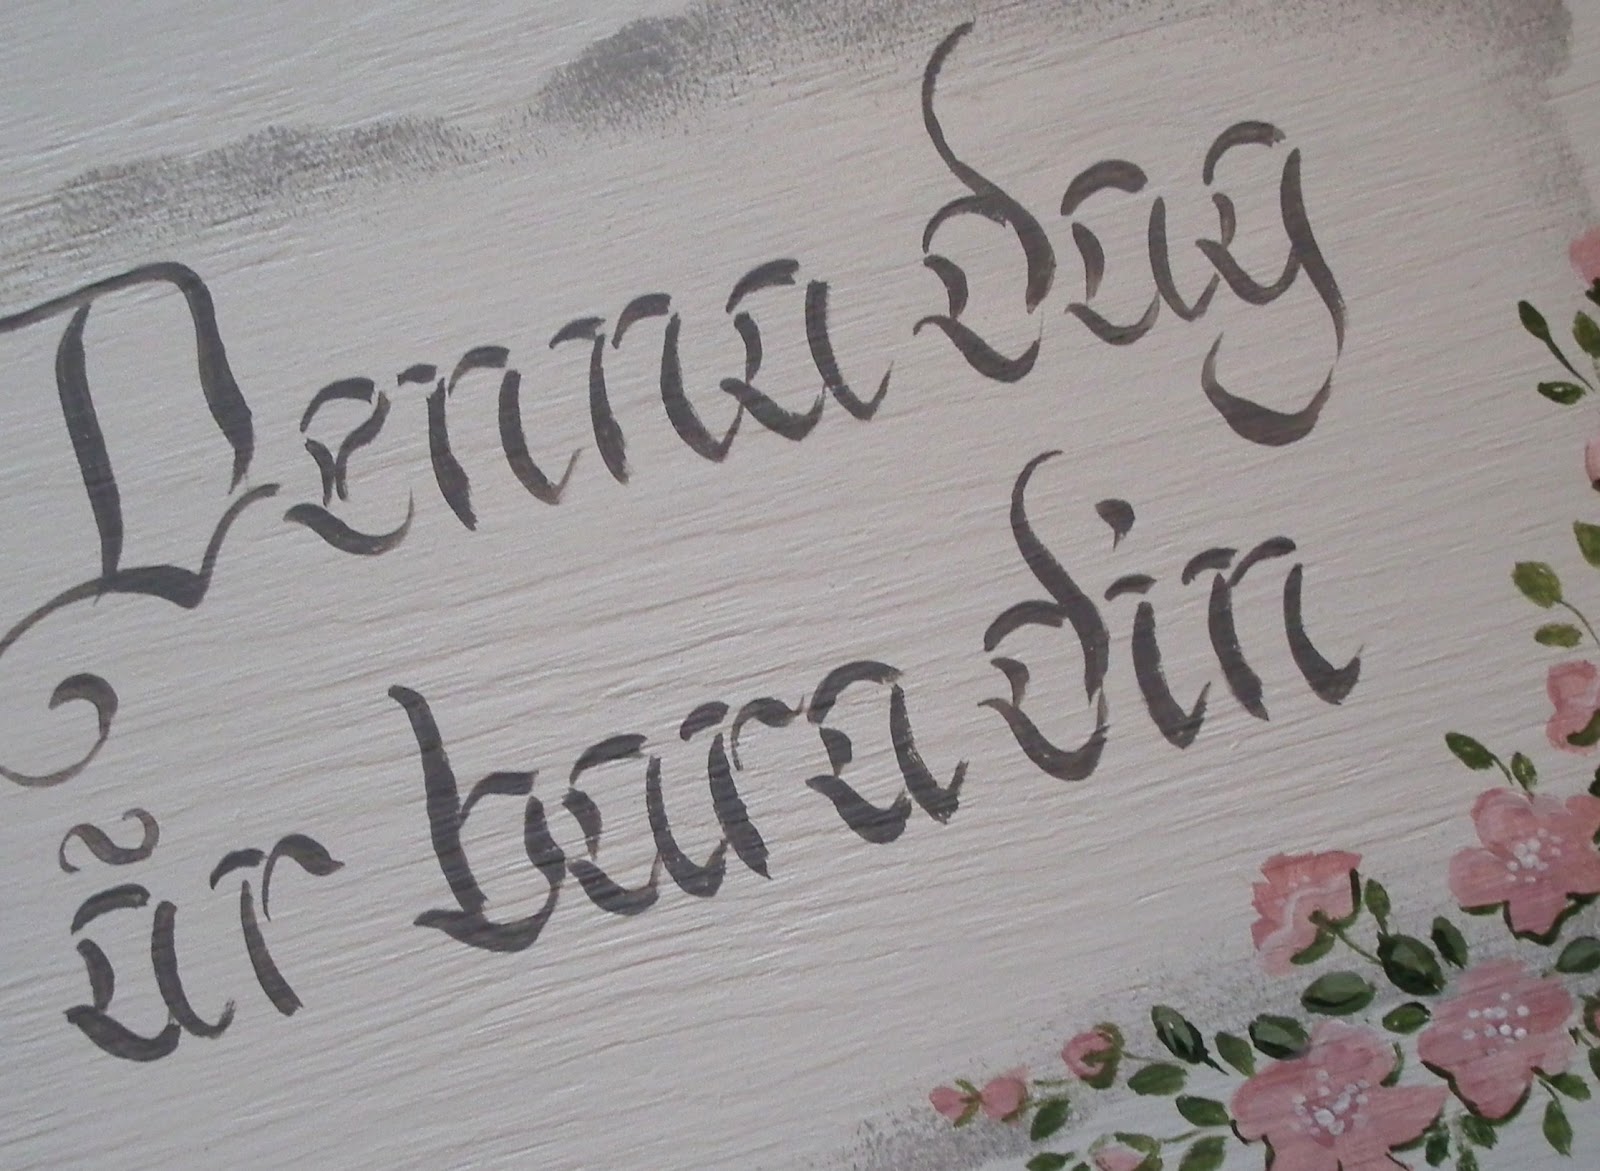 Denna dag
är bara din